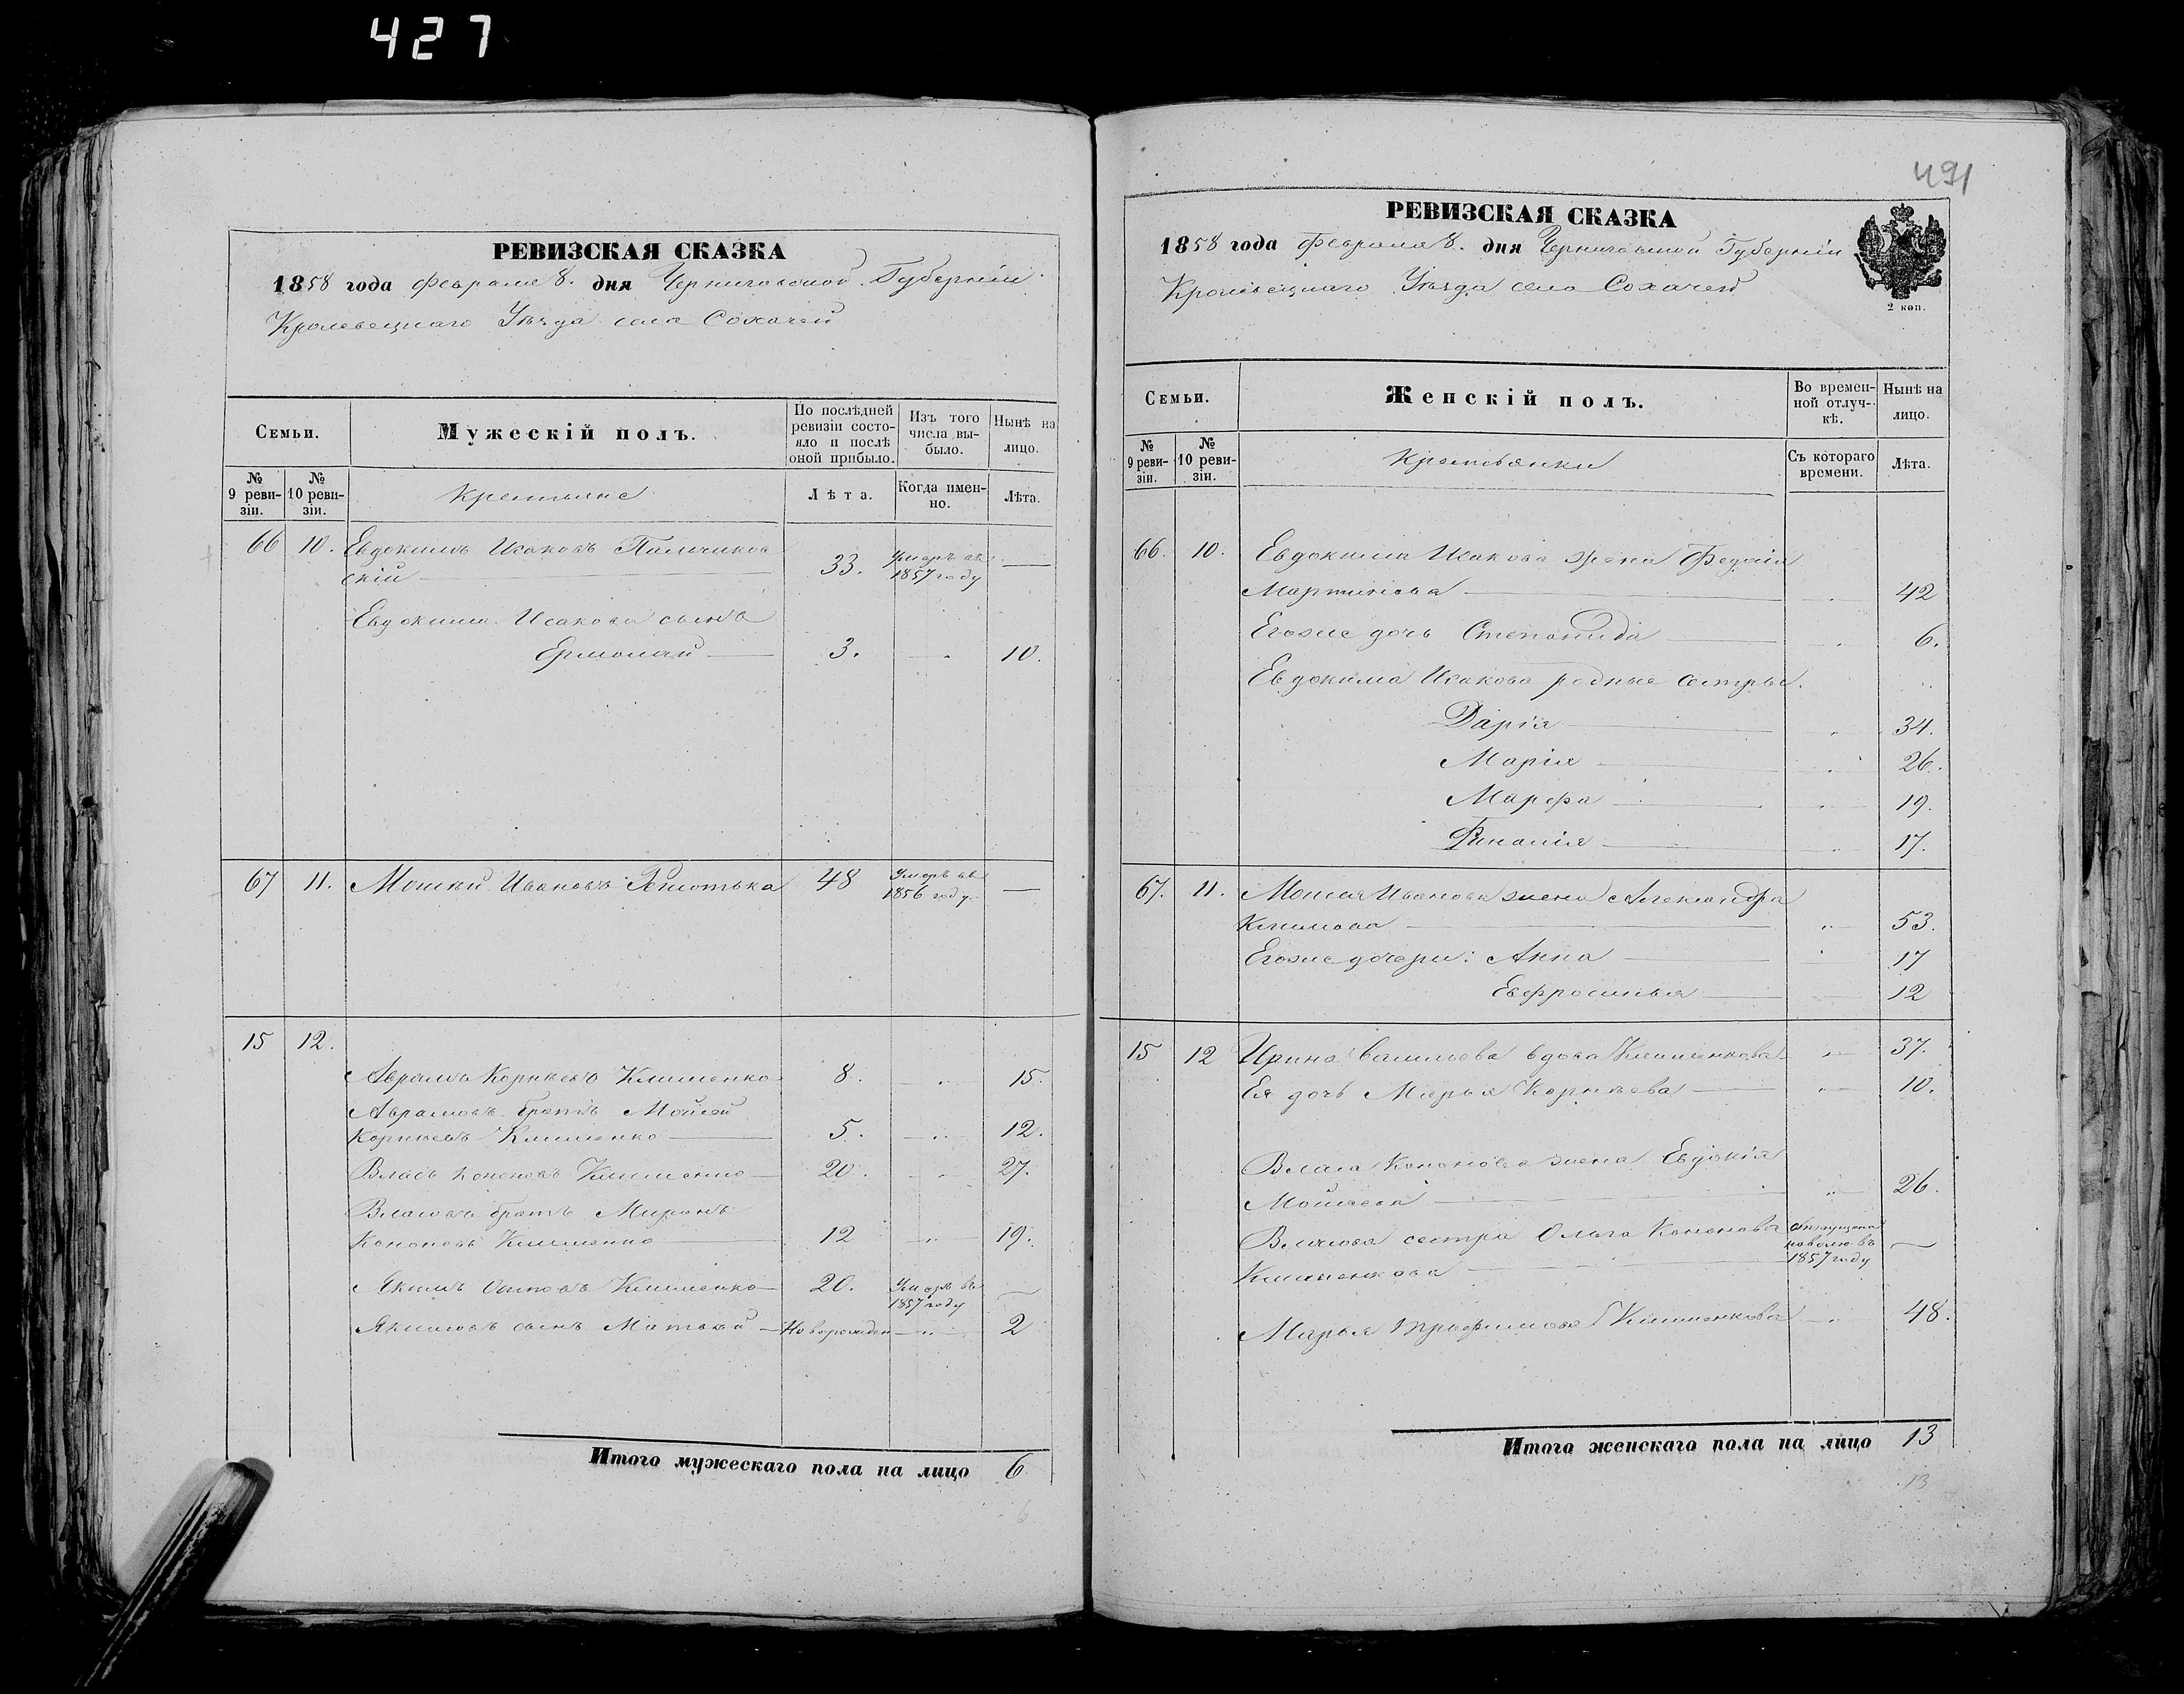 427
РЕВИЗСКАЯ СКАЗКА
1858 года Февраля 8. дня Черниговской Губерніи
Кролевецкаго Уѣзда села Сохачей
Семьи.
Мужескій полъ.
По послѣдней ревизіи состояло и послѣ оной прибыло.
Изъ того числа выбыло.
Нынѣ на лицо.
№ 9 ревизіи.
№ 10 ревизіи.
Крестьяне
Лѣта.
Когда именно.
Лѣта.
66 10. Евдокимъ Исаковъ
скій — 33. Умеръ въ 1857 году —
Евдокима Исакова сынъ
Ермолай — 3. — 10.
67 11. Иванъ 48 Умеръ въ 1856 году —
15 12.
Аврамъ Корнѣевъ Клименко 8. „ 15.
Аврамовъ братъ Мойсей
Корнѣевъ Клименко — 5. — „ 12.
Власъ Кононовъ Клименко — 20. — „ 27.
Власовъ братъ Миронъ
Кононовъ Клименко — 12 — „ 19.
Якимъ Клименко — 20. Умеръ въ 1857 году —
Якимовъ сынъ Матвѣй — Новорожден — „ 2
Итого мужескаго пола на лицо 6
6
491
РЕВИЗСКАЯ СКАЗКА
1858 года Февраля 8. дня Черниговской Губерніи
Кролевецкаго Уѣзда села Сохачей
2 коп.
Семьи.
Женскій полъ.
Во временной отлучкѣ.
Нынѣ на лицо.
№ 9 ревизіи.
№ 10 ревизіи.
Крестьянки
Съ котораго времени.
Лѣта.
66. 10. Евдокима Исакова жена
Мартинова — 42
Егоже дочь Степанида — „ 6.
Евдокима Исакова родные сестры.
Дарія — „ 34.
Марія — „ 26.
Марфа — „ 19.
17.
67. 11. Иванова жена Александра
Климова — „ 53.
Егоже дочери: Анна — „ 17
Евфросинья — 12
15 12 Ирина вдова Клименкова — „ 37.
Ея дочь Марья Корнѣева — „ 10.
Власа Кононова жена Евдокія
Мойсеева — „ 26.
Власова сестра Ольга Кононова Отпущена на волю въ 1857 году —
Клименкова —
Марья Трофимова Клименкова — „ 48.
Итого женскаго пола на лицо 13
13